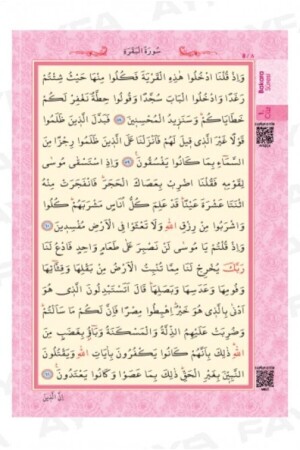 سُورَةُ الْبَقَرَةِ
وَاِذْ قُلْنَا ادْخُلُوا هٰذِهِ الْقَرْيَةَ فَكُلُوا مِنْهَا حَيْثُ شِئْتُمْ
رَغَدًا وَادْخُلُوا الْبَابَ سُجَّدًا وَقُولُوا حِطَّةٌ نَغْفِرْ لَكُمْ
خَطَايَاكُمْ وَسَنَزِيدُ الْمُحْسِنِينَ فَبَدَّلَ الَّذِينَ ظَلَمُوا
قَوْلًا غَيْرَ الَّذِي قِيلَ لَهُمْ فَاَنْزَلْنَا عَلَى الَّذِينَ ظَلَمُوا رِجْزًا مِنَ
السَّمَاءِ بِمَا كَانُوا يَفْسُقُونَ وَاِذِ اسْتَسْقٰى مُوسٰى
لِقَوْمِهِ فَقُلْنَا اضْرِبْ بِعَصَاكَ الْحَجَرَ فَانْفَجَرَتْ مِنْهُ
اثْنَتَا عَشْرَةَ عَيْنًا قَدْ عَلِمَ كُلُّ اُنَاسٍ مَشْرَبَهُمْ كُلُوا
وَاشْرَبُوا مِنْ رِزْقِ اللّٰهِ وَلَا تَعْثَوْا فِي الْاَرْضِ مُفْسِدِينَ
وَاِذْ قُلْتُمْ يَا مُوسٰى لَنْ نَصْبِرَ عَلٰى طَعَامٍ وَاحِدٍ فَادْعُ لَنَا
رَبَّكَ يُخْرِجْ لَنَا مِمَّا تُنْبِتُ الْاَرْضُ مِنْ بَقْلِهَا وَقِثَّائِهَا
وَفُومِهَا وَعَدَسِهَا وَبَصَلِهَا قَالَ اَتَسْتَبْدِلُونَ الَّذِي هُوَ
اَدْنٰى بِالَّذِي هُوَ خَيْرٌ اِهْبِطُوا مِصْرًا فَاِنَّ لَكُمْ مَا سَاَلْتُمْ
وَضُرِبَتْ عَلَيْهِمُ الذِّلَّةُ وَالْمَسْكَنَةُ وَبَاؤُ بِغَضَبٍ مِنَ
اللّٰهِ ذٰلِكَ بِاَنَّهُمْ كَانُوا يَكْفُرُونَ بِاٰيَاتِ اللّٰهِ وَيَقْتُلُونَ
النَّبِيِّنَ بِغَيْرِ الْحَقِّ ذٰلِكَ بِمَا عَصَوْا وَكَانُوا يَعْتَدُونَ
اِنَّ الَّذِينَ
Bakara